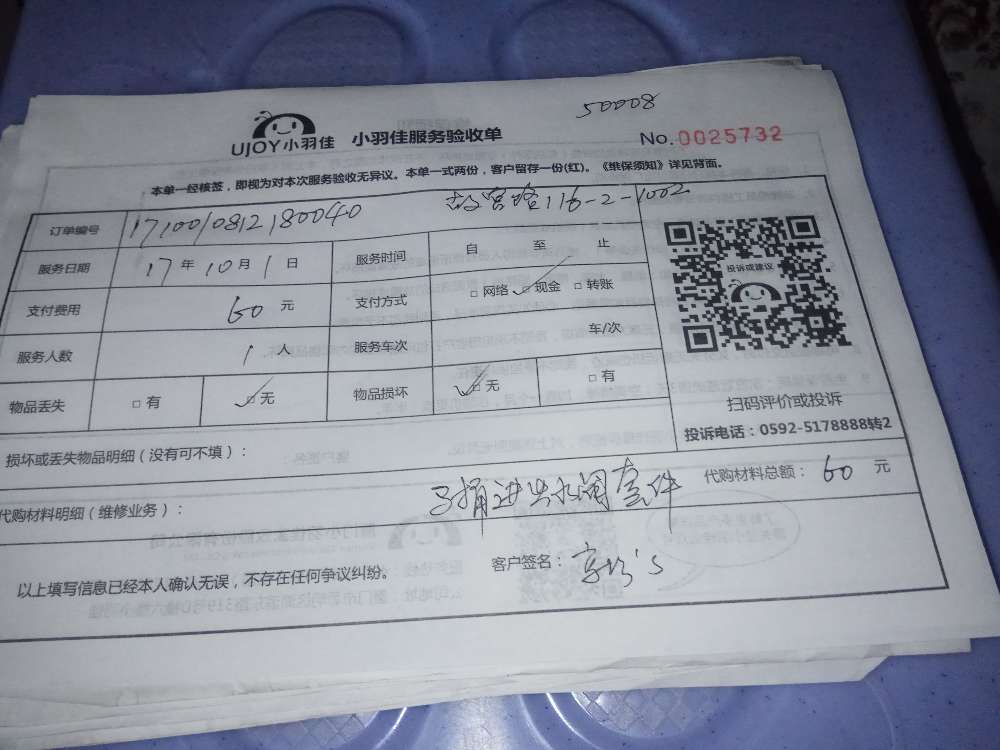 50008
UJOY小羽佳 小羽佳服务验收单 No.0025732
本单一经核签，即视为对本次服务验收无异议。本单一式两份，客户留存一份(红)。《维保须知》详见背面。
订单编号 1710010812180040 故宫路116-2-1002
服务日期 17年10月1日 服务时间 自 至 止
支付费用 60元 支付方式 □网络 ✓现金 □转账
服务人数 1人 服务车次 车/次
物品丢失 □有 ✓无 物品损坏 ✓无 □有
投诉或建议
扫码评价或投诉
投诉电话：0592-5178888转2
损坏或丢失物品明细（没有可不填）：
代购材料明细（维修业务）： 进水阀套件 代购材料总额：60元
以上填写信息已经本人确认无误，不存在任何争议纠纷。 客户签名：